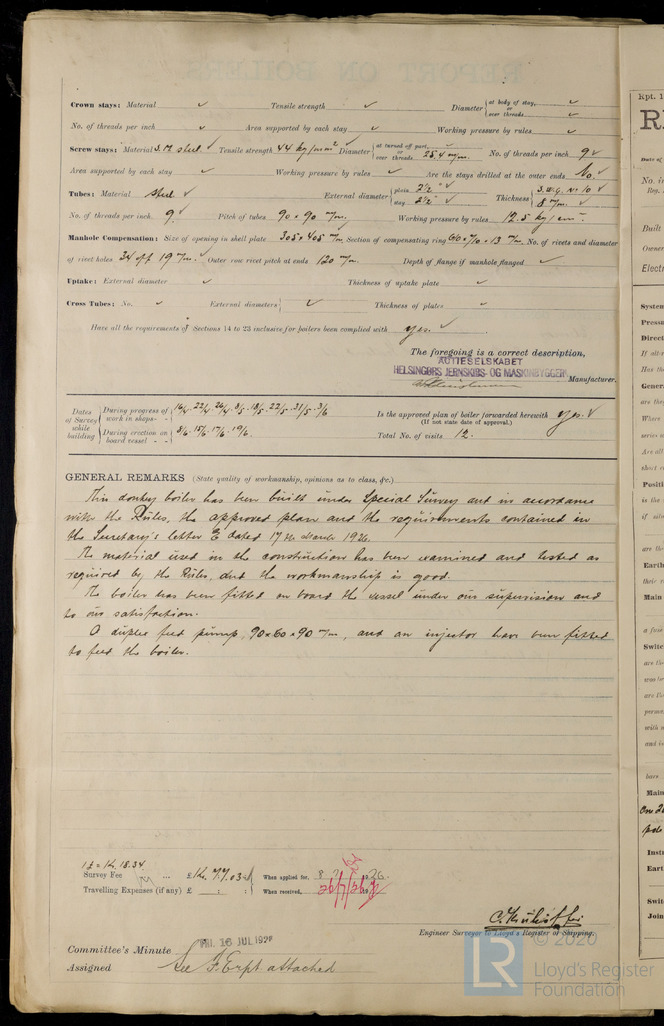 Crown stays: Material ✓ Tensile strength ✓ Diameter at body of stay, or over threads ✓
No. of threads per inch ✓ Area supported by each stay ✓ Working pressure by rules ✓
Screw stays: Material S.M. steel Tensile strength 44 kg/mm² Diameter at turned off part, or over threads 25.4 m/m. No. of threads per inch 9 ✓
Area supported by each stay ✓ Working pressure by rules ✓ Are the stays drilled at the outer ends No.
Tubes: Material steel ✓ External diameter plain 2½" ✓ stay 2½" ✓ Thickness S.W.G. No 10 ✓ 8 m/m. ✓
No. of threads per inch 9. Pitch of tubes 90 × 90 m/m. Working pressure by rules 12.5 kg/cm².
Manhole Compensation: Size of opening in shell plate 305 × 405 m/m Section of compensating ring × 13 m/m. No. of rivets and diameter
of rivet holes 34 off 19 m/m. Outer row rivet pitch at ends 120 m/m. Depth of flange if manhole flanged ✓
Uptake: External diameter ✓ Thickness of uptake plate ✓
Cross Tubes: No. ✓ External diameters ✓ Thickness of plates ✓
Have all the requirements of Sections 14 to 23 inclusive for boilers been complied with yes. ✓
The foregoing is a correct description,
AKTIESELSKABET
HELSINGØRS JERNSKIBS- OG MASKINBYGGERI Manufacturer.
Dates of Survey while building During progress of work in shops - - 16/4 22/4 26/4 8/5 18/5 22/5 31/5 3/6
During erection on board vessel - - 8/6 15/6 17/6 19/6.
Is the approved plan of boiler forwarded herewith yes. ✓
(If not state date of approval.)
Total No. of visits 12.
GENERAL REMARKS (State quality of workmanship, opinions as to class, &c.)
This donkey boiler has been built under Special Survey and in accordance
with the Rules, the approved plan and the requirements contained in
the Secretary's letter E dated 17th March 1926.
The material used in the construction has been examined and tested as
required by the Rules, and the workmanship is good.
The boiler has been fitted on board the vessel under our supervision and
to our satisfaction.
A duplex feed pump, 90×60×90 m/m, and an injector have been fitted
to feed the boiler.
1£ = Kr. 18.34
Survey Fee ... £ Kr. 77.03 When applied for, 8.7.1926.
Travelling Expenses (if any) £ : : When received, 26/7/26
Engineer Surveyor to Lloyd's Register of Shipping.
Committee's Minute FRI. 16 JUL 1926
Assigned See F.E. rpt. attached
© 2020
LR
Lloyd's Register
Foundation
Rpt. 1